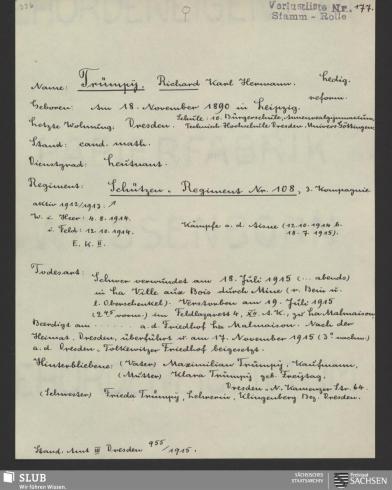 Verlustliste Nr. 177.
Stamm-Rolle
Name: Trümpy, Richard Karl Hermann. ledig.
reform.
Geboren: Am 18. November 1890 in Leipzig.
Schule: 10. Bürgerschule, Annenrealgymnasium,
Letzte Wohnung: Dresden. Technische Hochschule Dresden, Univers. Göttingen.
Stand: cand. math.
Dienstgrad: Leutnant.
Regiment: Schützen-Regiment Nr. 108, 3. Kompagnie
aktiv 1912/1913:
W. i. Heer: 4. 8. 1914.
Kämpfe a. d. Aisne (12.10.1914 b.
i. Feld: 12. 10. 1914.
18. 7. 1915).
E. K. II.
Todesart: Schwer verwundet am 18. Juli 1915 (... abends)
in La Ville aux Bois durch Mine (r. Bein u.
l. Oberschenkel). Verstorben am 19. Juli 1915
(2 vorm.) im Feldlazarett 4, XII. A.K., zu La Malmaison
Beerdigt am a. d. Friedhof La Malmaison. Nach der
Heimat, Dresden, überführt u. am 17. November 1915 (3 nachm.)
a. d. Dresden, Tolkewitzer Friedhof beigesetzt.
Hinterbliebene: (Vater) Maximilian Trümpy, Kaufmann,
(Mutter) Klara Trümpy geb. Freytag.
Dresden-N. Kamenzer Str. 64.
(Schwester) Frieda Trümpy, Lehrerin, Klingenberg Bez. Dresden.
Stand. Amt III Dresden 955/1915.
SLUB
Wir führen Wissen.
SÄCHSISCHES
STAATSARCHIV
Freistaat
SACHSEN